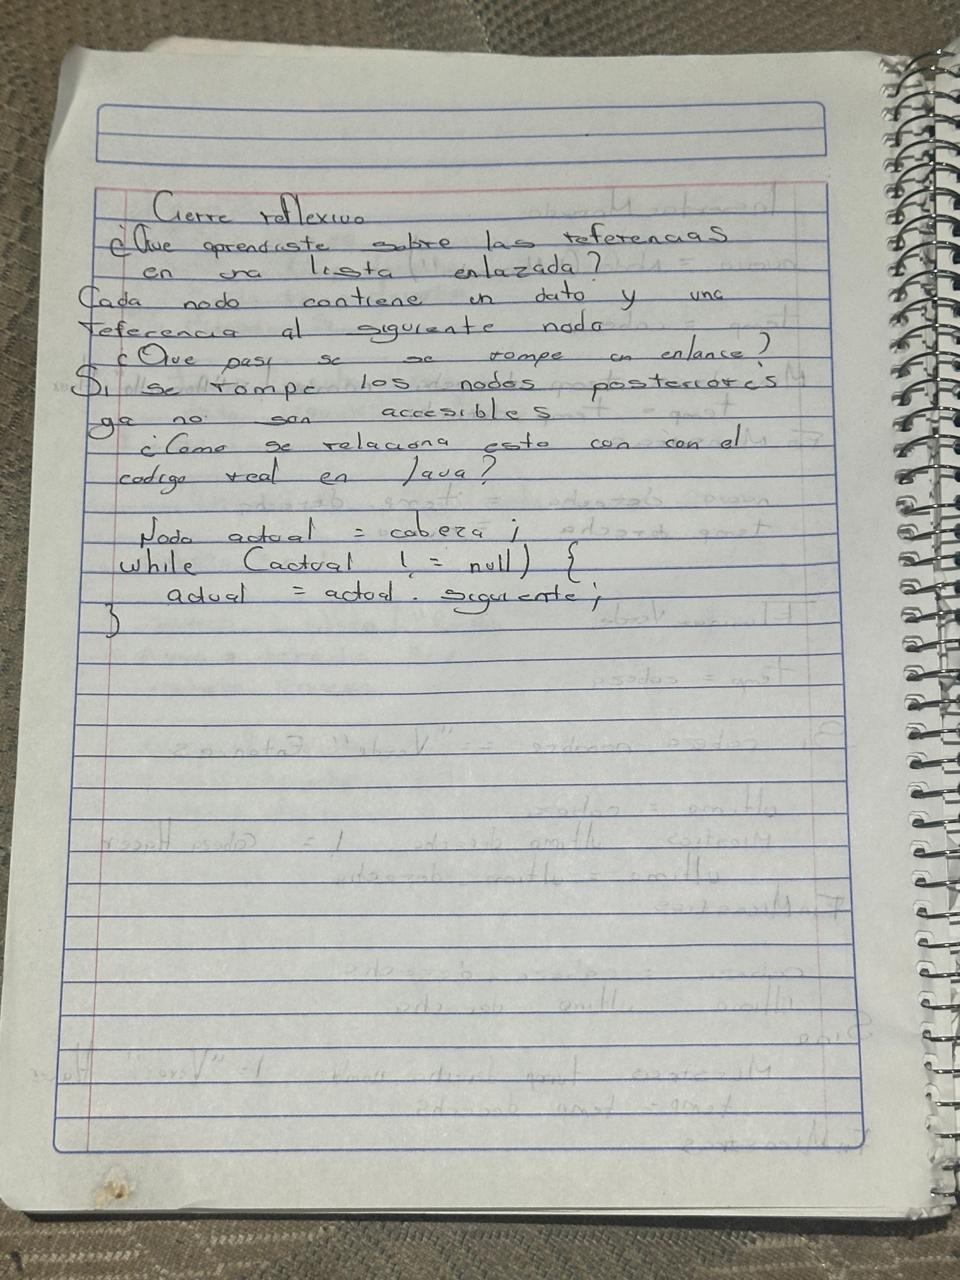 Cierre reflexivo
¿Que aprendiste sobre las referencias
en una lista enlazada?
Cada nodo contiene un dato y una
referencia al siguiente nodo
¿Que pasi se se rompe un enlance?
Si se rompe los nodos posteriores
ya no son accesibles
¿Como se relaciona esto con con el
codigo real en Java?
Nodo actual = cabeza ;
while (actual ! = null) {
actual = actual . siguiente ;
}